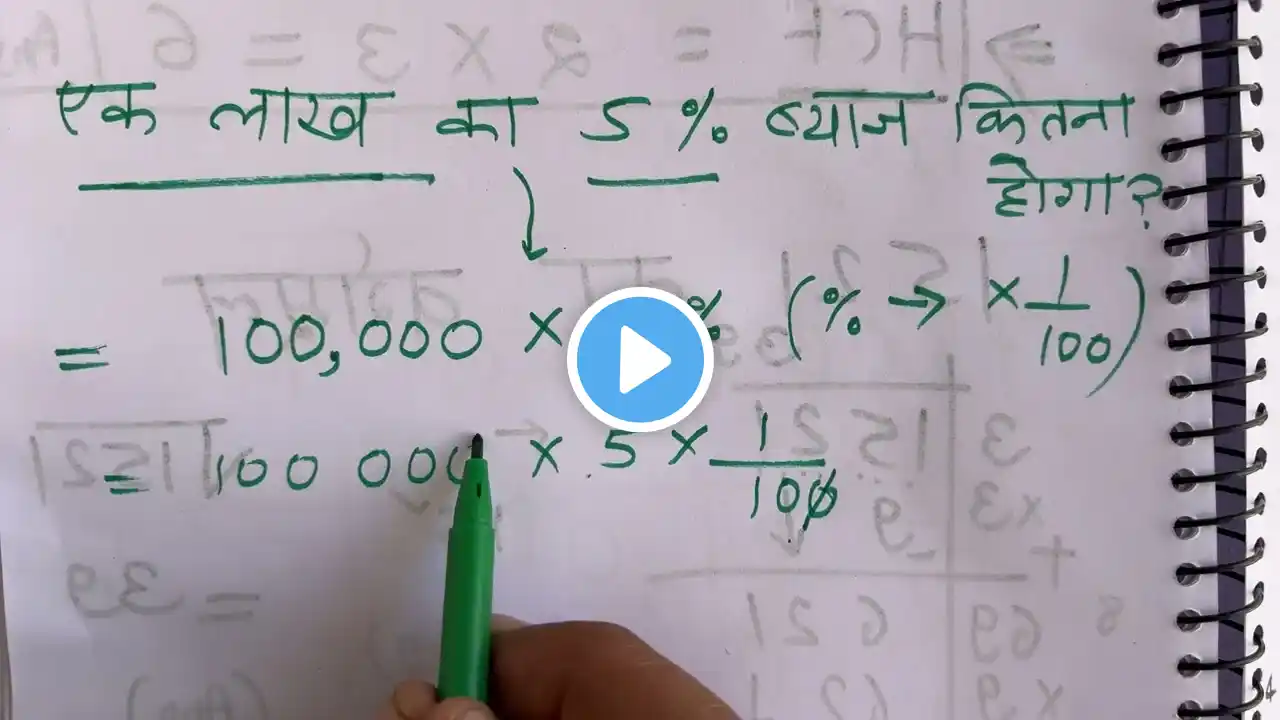 एक लाख का 5 % ब्याज कितना
होगा?
= 100,000 × % (% → × 1/100)
= 100 000 × 5 × 1/100